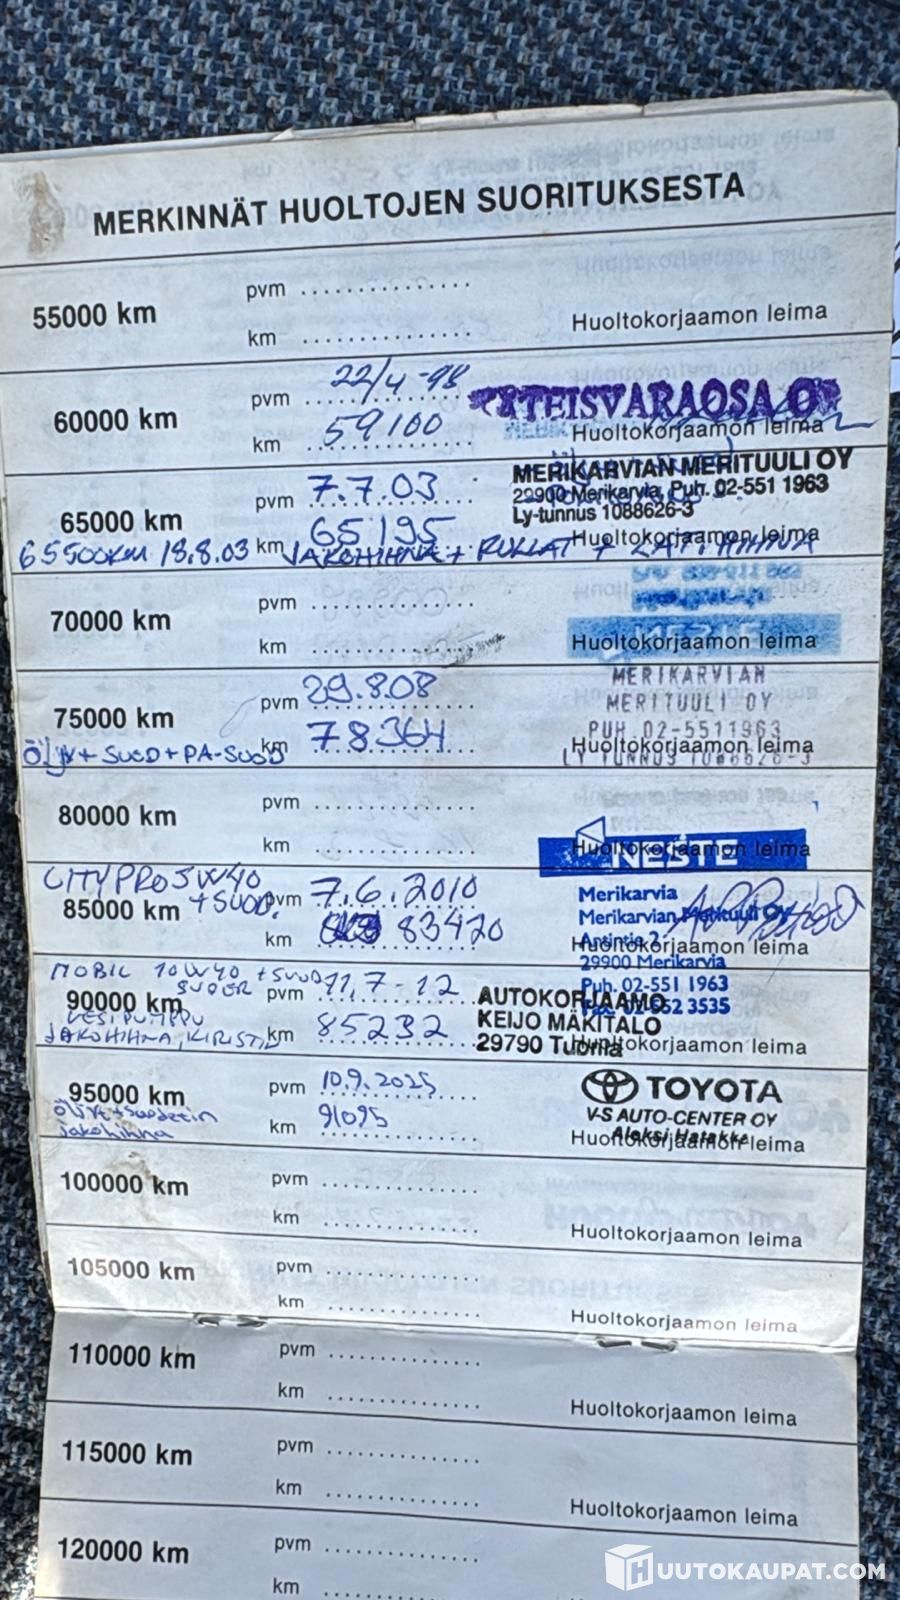 MERKINNÄT HUOLTOJEN SUORITUKSESTA
55000 km
pvm
km
Huoltokorjaamon leima
60000 km
pvm 22/4-98
km 59100
YTEISVARAOSA OY
Huoltokorjaamon leima
65000 km
pvm 7.7.03
km 65195
MERIKARVIAN MERITUULI OY
29900 Merikarvia, Puh. 02-551 1963
Ly-tunnus 1088626-3
Huoltokorjaamon leima
65500KM 18.8.03 JAKOHIHNA + RULLAT + LAT.HIHNA
70000 km
pvm
km
Huoltokorjaamon leima
75000 km
pvm 29.8.08
km 78364
ÖLJY + SUOD + PA-SUOD
MERIKARVIAN
MERITUULI OY
PUH. 02-5511963
LY TUNNUS 1088626-3
Huoltokorjaamon leima
80000 km
pvm
km
Huoltokorjaamon leima
NESTE
CITYPRO 5W40
+ SUOD.
85000 km
pvm 7.6.2010
km 83420
Merikarvia
Merikarvian Merituuli OY
29900 Merikarvia
Puh. 02-551 1963
Huoltokorjaamon leima
MOBIL 10W40 + SUOD
SUPER
90000 km
VESIPUMPPU
JAKOHIHNA, KIRISTIN
pvm 11.7-12
km 85232
AUTOKORJAAMO
KEIJO MÄKITALO
29790 Tuorila
Huoltokorjaamon leima
95000 km
öljyt + suodatin
jakohihna
pvm 10.9.2025
km 91095
TOYOTA
V-S AUTO-CENTER OY
Aleksi Hatakka
Huoltokorjaamon leima
100000 km
pvm
km
Huoltokorjaamon leima
105000 km
pvm
km
Huoltokorjaamon leima
110000 km
pvm
km
Huoltokorjaamon leima
115000 km
pvm
km
Huoltokorjaamon leima
120000 km
pvm
km
HUUTOKAUPAT.COM